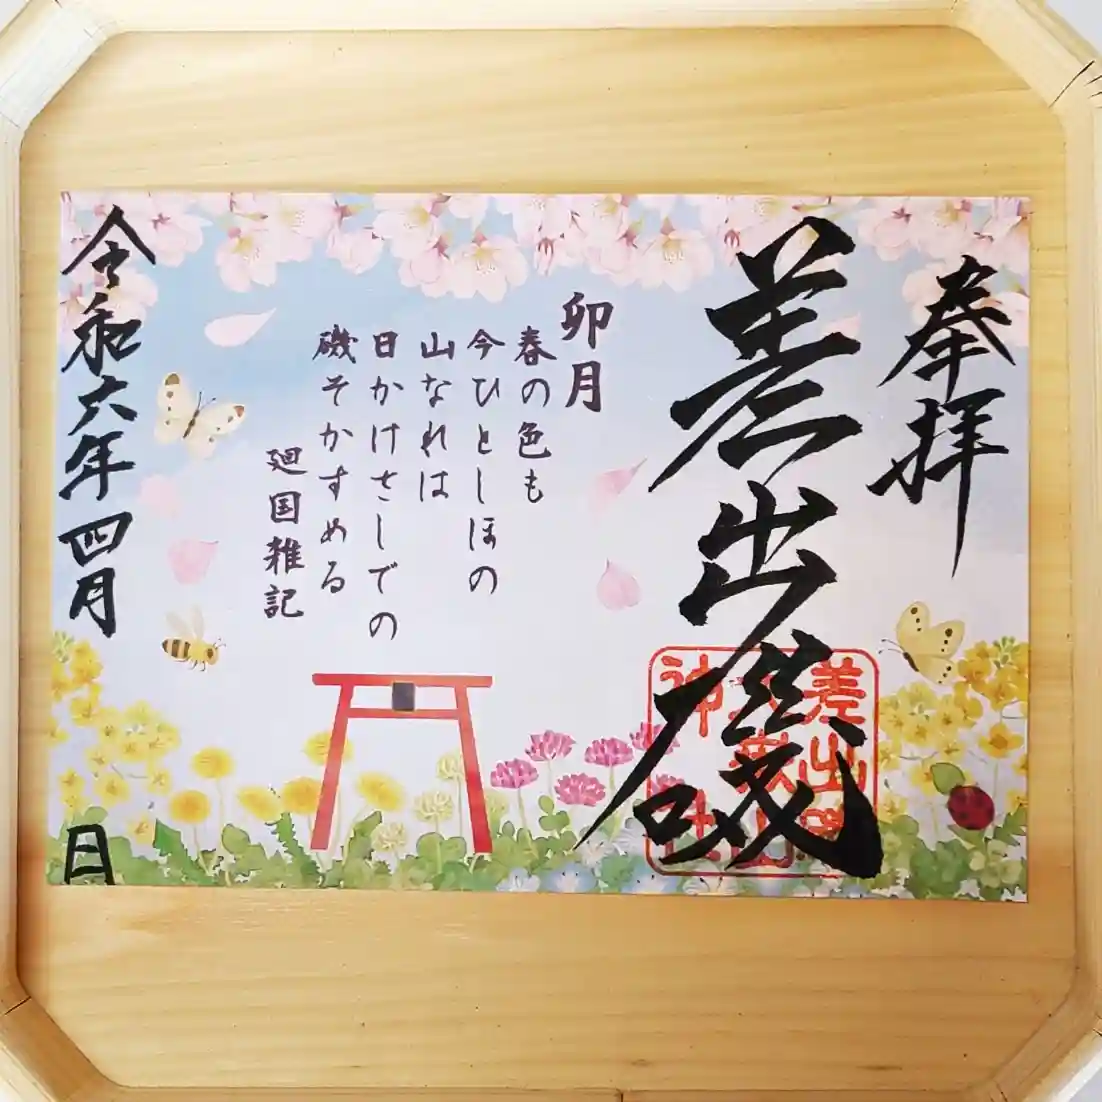 奉拝
差出磯
差出磯
大嶽山
神社
卯月
春の色も
今ひとしほの
山なれは
日かけさしでの
磯そかすめる
廻国雑記
令和六年四月 日